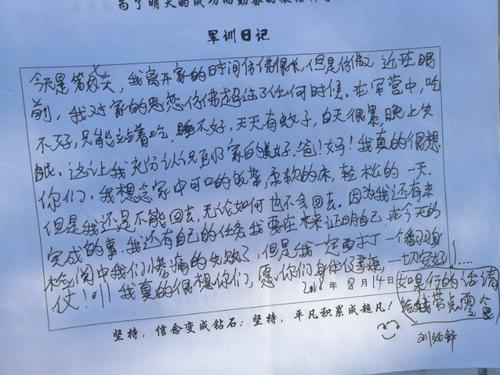 军训日记
今天是第六天，我离开家的时间仿佛很长，但是仿佛又近在眼
前，我对家的思念仿佛超过了任何时候。在军营中，吃
不好，只能站着吃，睡不好，天天有蚊子，白天很累，晚上失
眠。这让我充分认识到了家的美好。爸！妈！我真的很想
你们，我想念家中可口的饭菜，柔软的床，轻松的一天，
但是我还是不能回去，无论如何也不会回去。因为我还有未
完成的事，我还有自己的任务我要在未来证明自己，在今天的
检阅中我们惨痛的失败了，但是我一定要打一个翻身
仗！！！我真的很想你们，愿你们身体健康，一切安好！
2018年8月14日
如果行的话请
给我带点零食
坚持，信念变成钻石；坚持，平凡积累成超凡！